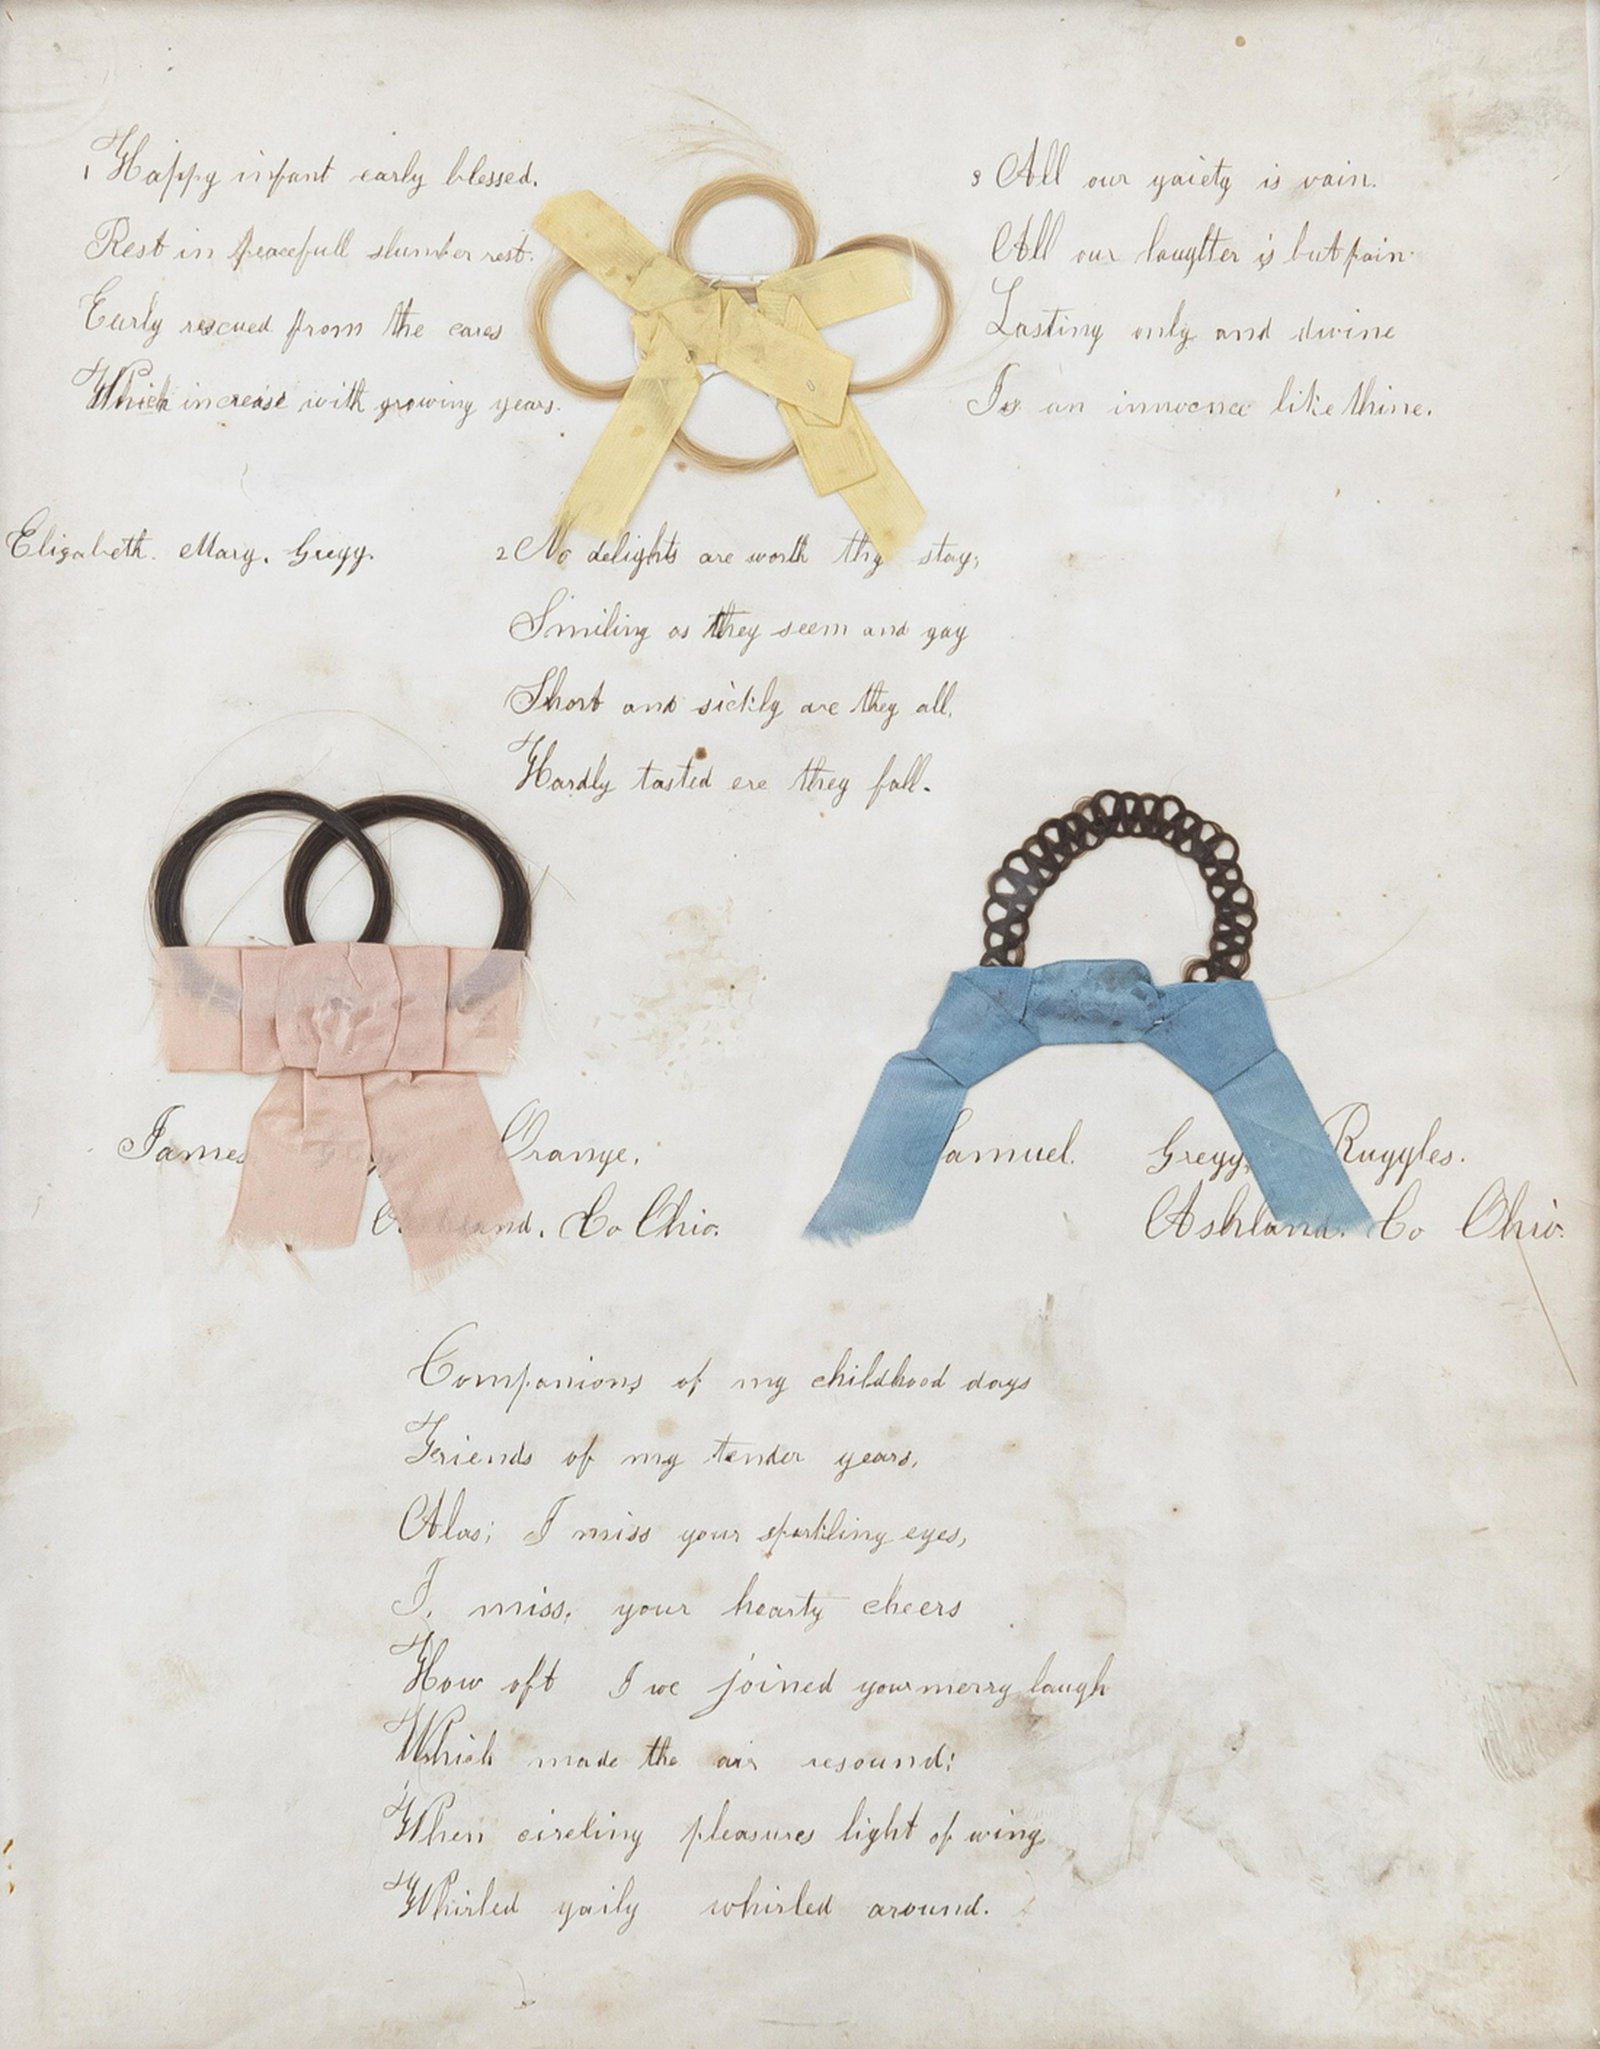 1 Happy infant early blessed.
Rest in peacefull slumber rest.
Early rescued from the cares
Which increase with growing years.
Elizabeth. Mary. Gregg.
2 No delights are worth thy stay;
Smiling as they seem and gay
Short and sickly are they all.
Hardly tasted ere they fall.
3 All our gaiety is vain.
All our laughter is but pain.
Lasting only and divine
Is an innocence like thine.
James Gregg Orange.
Ashland. Co Ohio.
Samuel. Gregg. Ruggles.
Ashland. Co Ohio.
Companions of my childhood days
Friends of my tender years,
Alas; I miss your sparkling eyes,
I. miss. your hearty cheers
How oft I ve joined your merry laugh
Which made the air resound;
When circling pleasures light of wing
Whirled gaily whirled around.